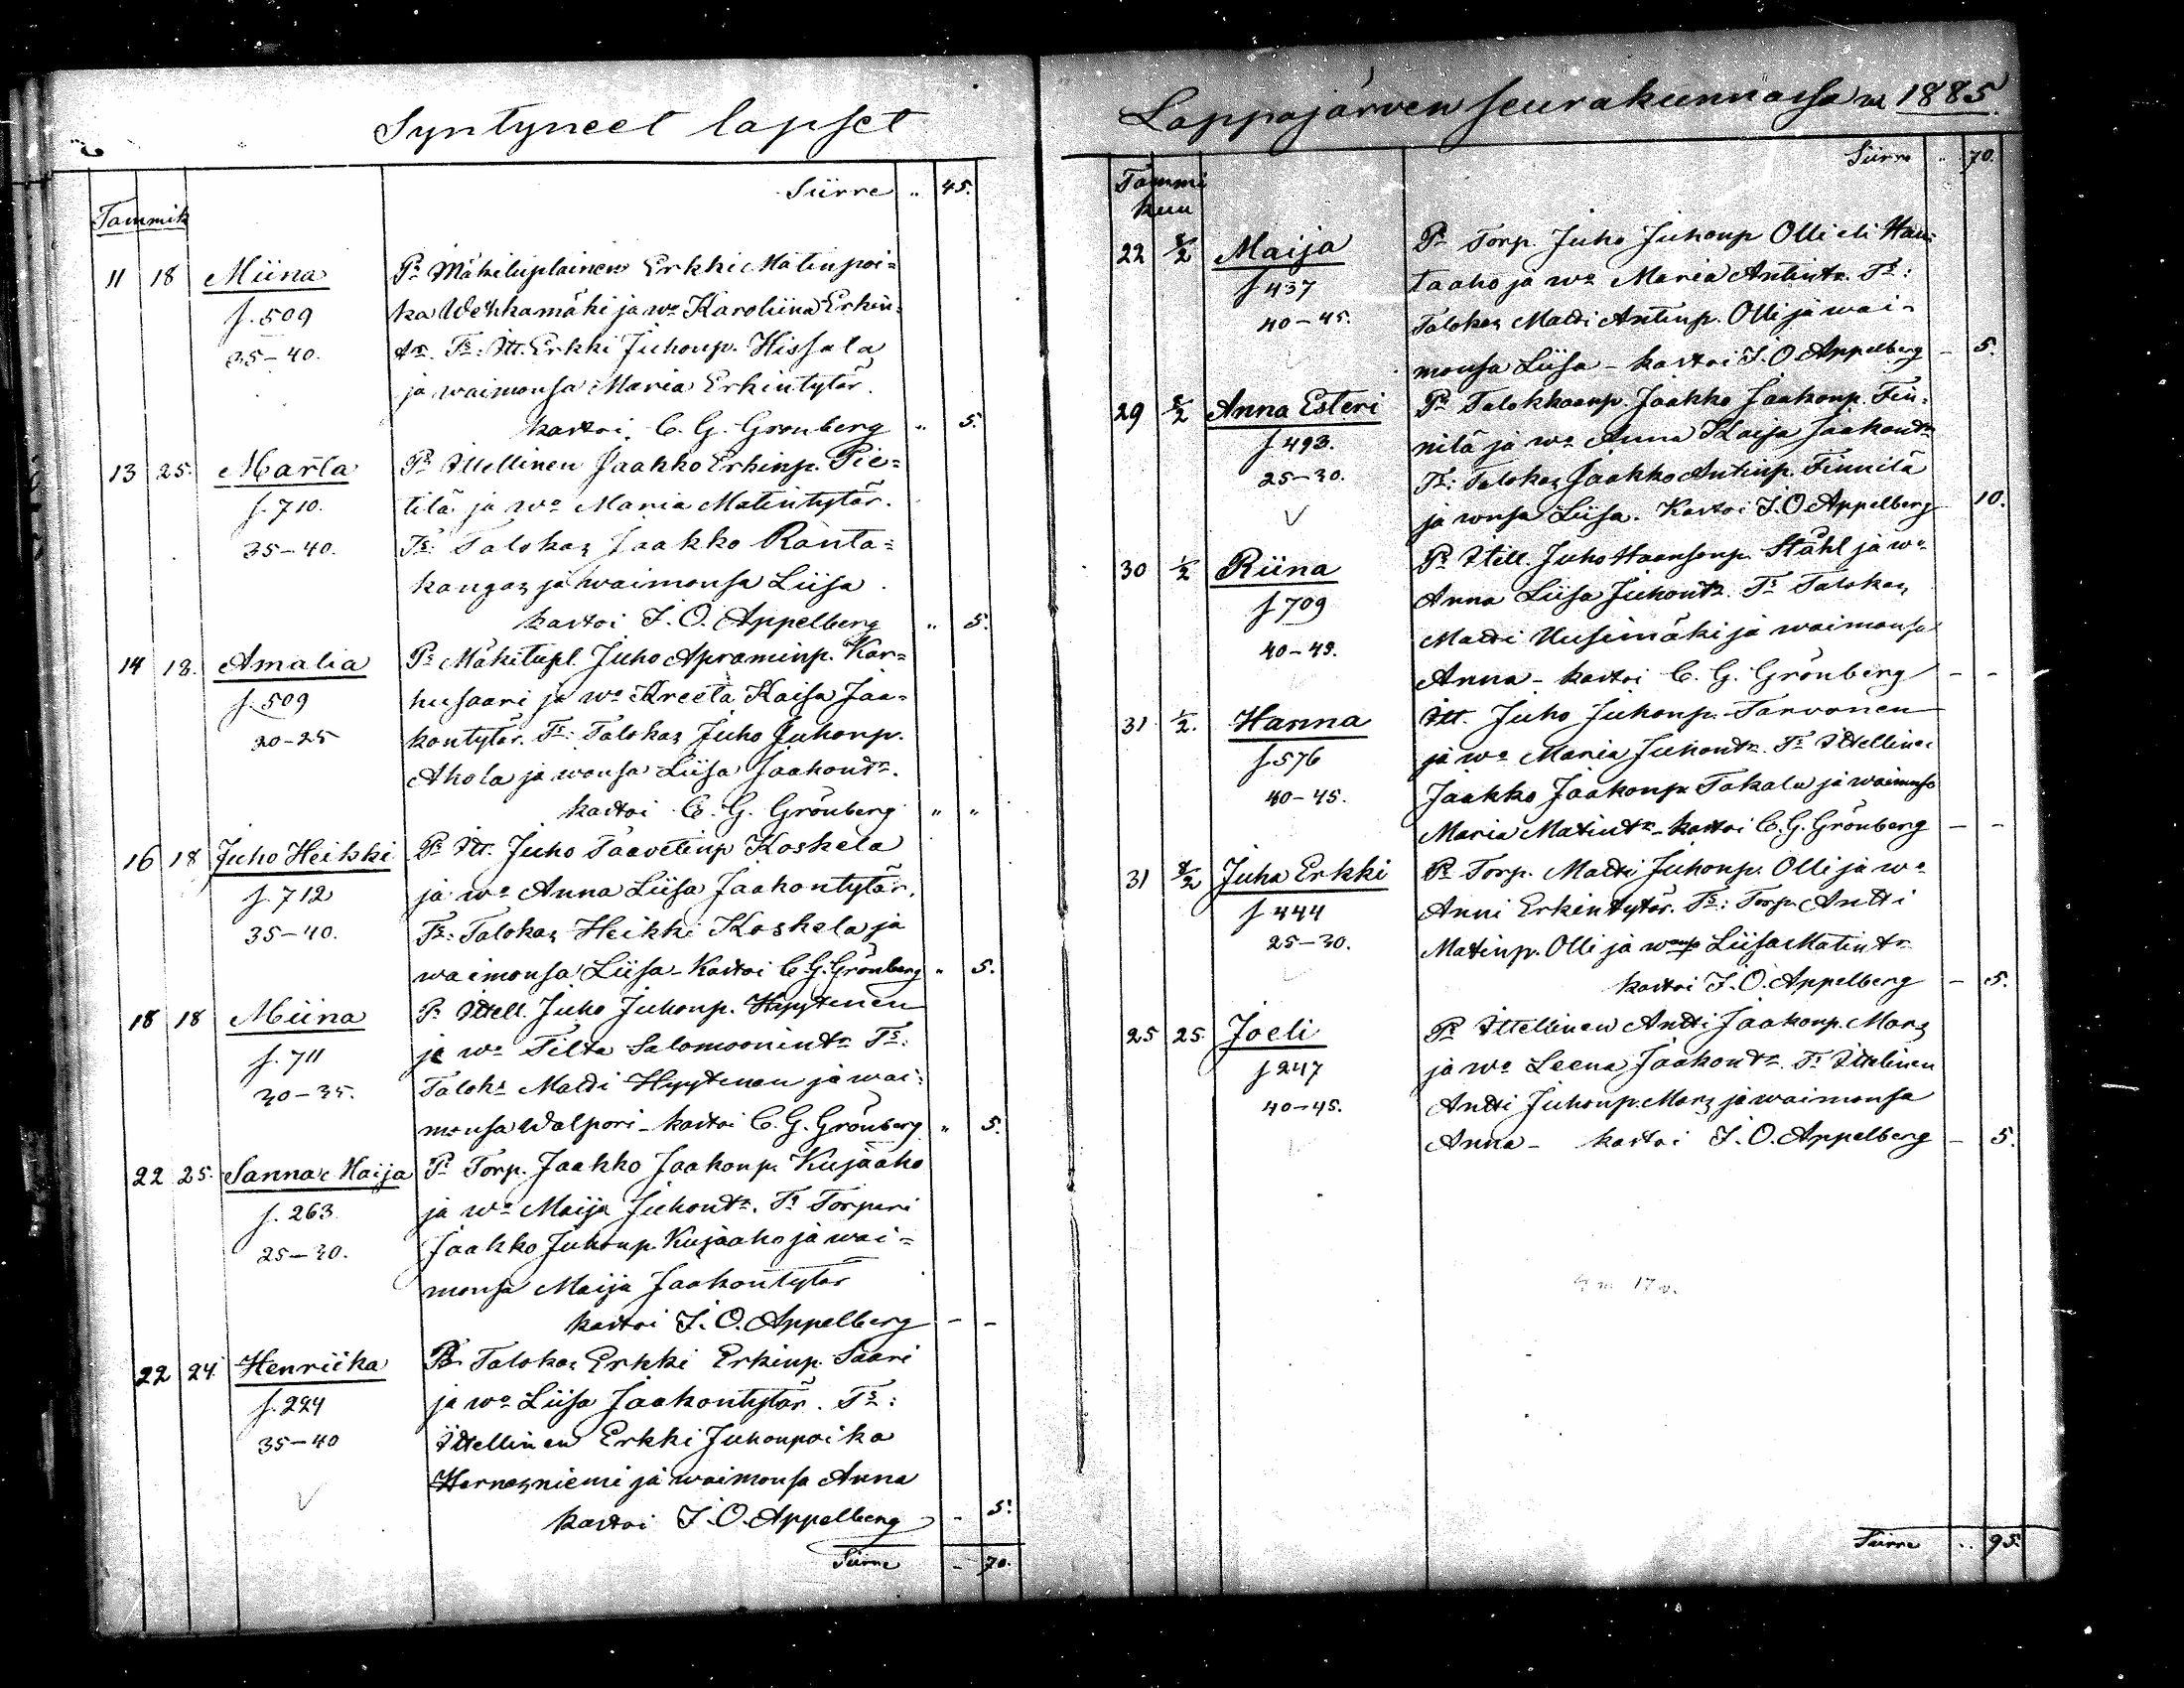 Syntyneet lapset
Siirre " 45.
Tammik
11 18 Miina Pr Mäkituplainen Erkki Matinpoi=
f. 509 ka Wehkamäki ja wo Karoliina Erkin=
35-40. tr. Ts: Itt. Erkki Juhonp. Hissala
ja waimonsa Maria Erkintytär.
kastoi C. G. Grönberg " 5.
13 25. Marta Pr Ittellinen Jaakko Erkinp. Pie=
f. 710. tilä ja wo Maria Matintytär.
35-40. Ts: Talokas Jaakko Ranta=
kangas ja waimonsa Liisa.
kastoi J. O. Appelberg " 5.
14 18. Amalia Pr Mäkitupl. Juho Apraminp. Kar=
f. 509 husaari ja wo Kreeta Kaisa Jaa=
20-25 kontytär. Ts: Talokas Juho Juhonp.
Ahola ja wonsa Liisa Jaakontr.
kastoi C. G. Grönberg " "
16 18 Juho Heikki Pr Itt. Juho Taavetinp Koskela
f. 712 ja wo Anna Liisa Jaakontytär.
35-40. Ts: Talokas Heikki Koskela ja
waimonsa Liisa - Kastoi C. G. Grönberg " 5.
18 18 Miina Pr Ittell. Juho Juhonp. Hyytinen
f. 711 ja wo Tilta Salomoonintr Ts:
30-35. Taloks Matti Hyytinen ja wai=
monsa Walpori - kastoi C. G. Grönberg " 5.
22 25. Sanna Maija Pr Torp. Jaakko Jaakonp. Kujaaho
f. 263. ja wo Maija Juhontr. Ts Torpari
25-30. Jaakko Juhonp. Kujaaho ja wai=
monsa Maija Jaakontytär
kastoi J. O. Appelberg - -
22 24. Henriika Pr Talokas Erkki Erkinp. Saari
f. 224 ja wo Liisa Jaakontytär. Ts:
35-40 Ittellinen Erkki Juhonpoika
Hernesniemi ja waimonsa Anna
kastoi J. O. Appelberg - 5.
Siirre - 70.
Lappajärven seurakunnassa w. 1885.
Siirre " 70.
Tammi
kuu
22 8/2 Maija Pr Torp. Juho Juhonp Olli eli Hau=
f 437 taaho ja wo Maria Antintr. Ts:
40-45. Talokas Matti Antinp. Olli ja wai=
monsa Liisa - kastoi J. O. Appelberg - 5.
29 8/2 Anna Esteri Pr Talokkaanp. Jaakko Jaakonp. Fin=
f 493. nilä ja wo Anna Kaisa Jaakontr
25-30. Ts: Talokas Jaakko Antinp. Finnilä
ja wnsa Liisa. Kastoi J. O. Appelberg 10.
30 1/2 Riina Pr Ittell. Juho Haansonp. Ståhl ja wo
f 709 Anna Liisa Juhontr. Ts Talokas
40-45. Matti Uusimäki ja waimonsa
Anna - kastoi C. G. Grönberg - -
31 1/2. Hanna Itt. Juho Juhonp. Tarvonen
f. 576 ja wo Maria Juhontr. Ts Ittellinen
40-45. Jaakko Jaakonp. Takala ja waimonsa
Maria Matintr - kastoi C. G. Grönberg - -
31 8/2 Juha Erkki Pr Torp. Matti Juhonp. Olli ja wo
f 444 Anni Erkintytär. Ts: Torp. Antti
25-30. Matinp. Olli ja wonsa Liisa Matintr
kastoi J. O. Appelberg - 5.
25 25. Joeli Pr Ittellinen Antti Jaakonp. Mars
f 247 ja wo Leena Jaakontr. Ts Ittelinen
40-45. Antti Juhonp. Mars ja waimonsa
Anna - kastoi J. O. Appelberg - 5.
17
Siirre " 95.